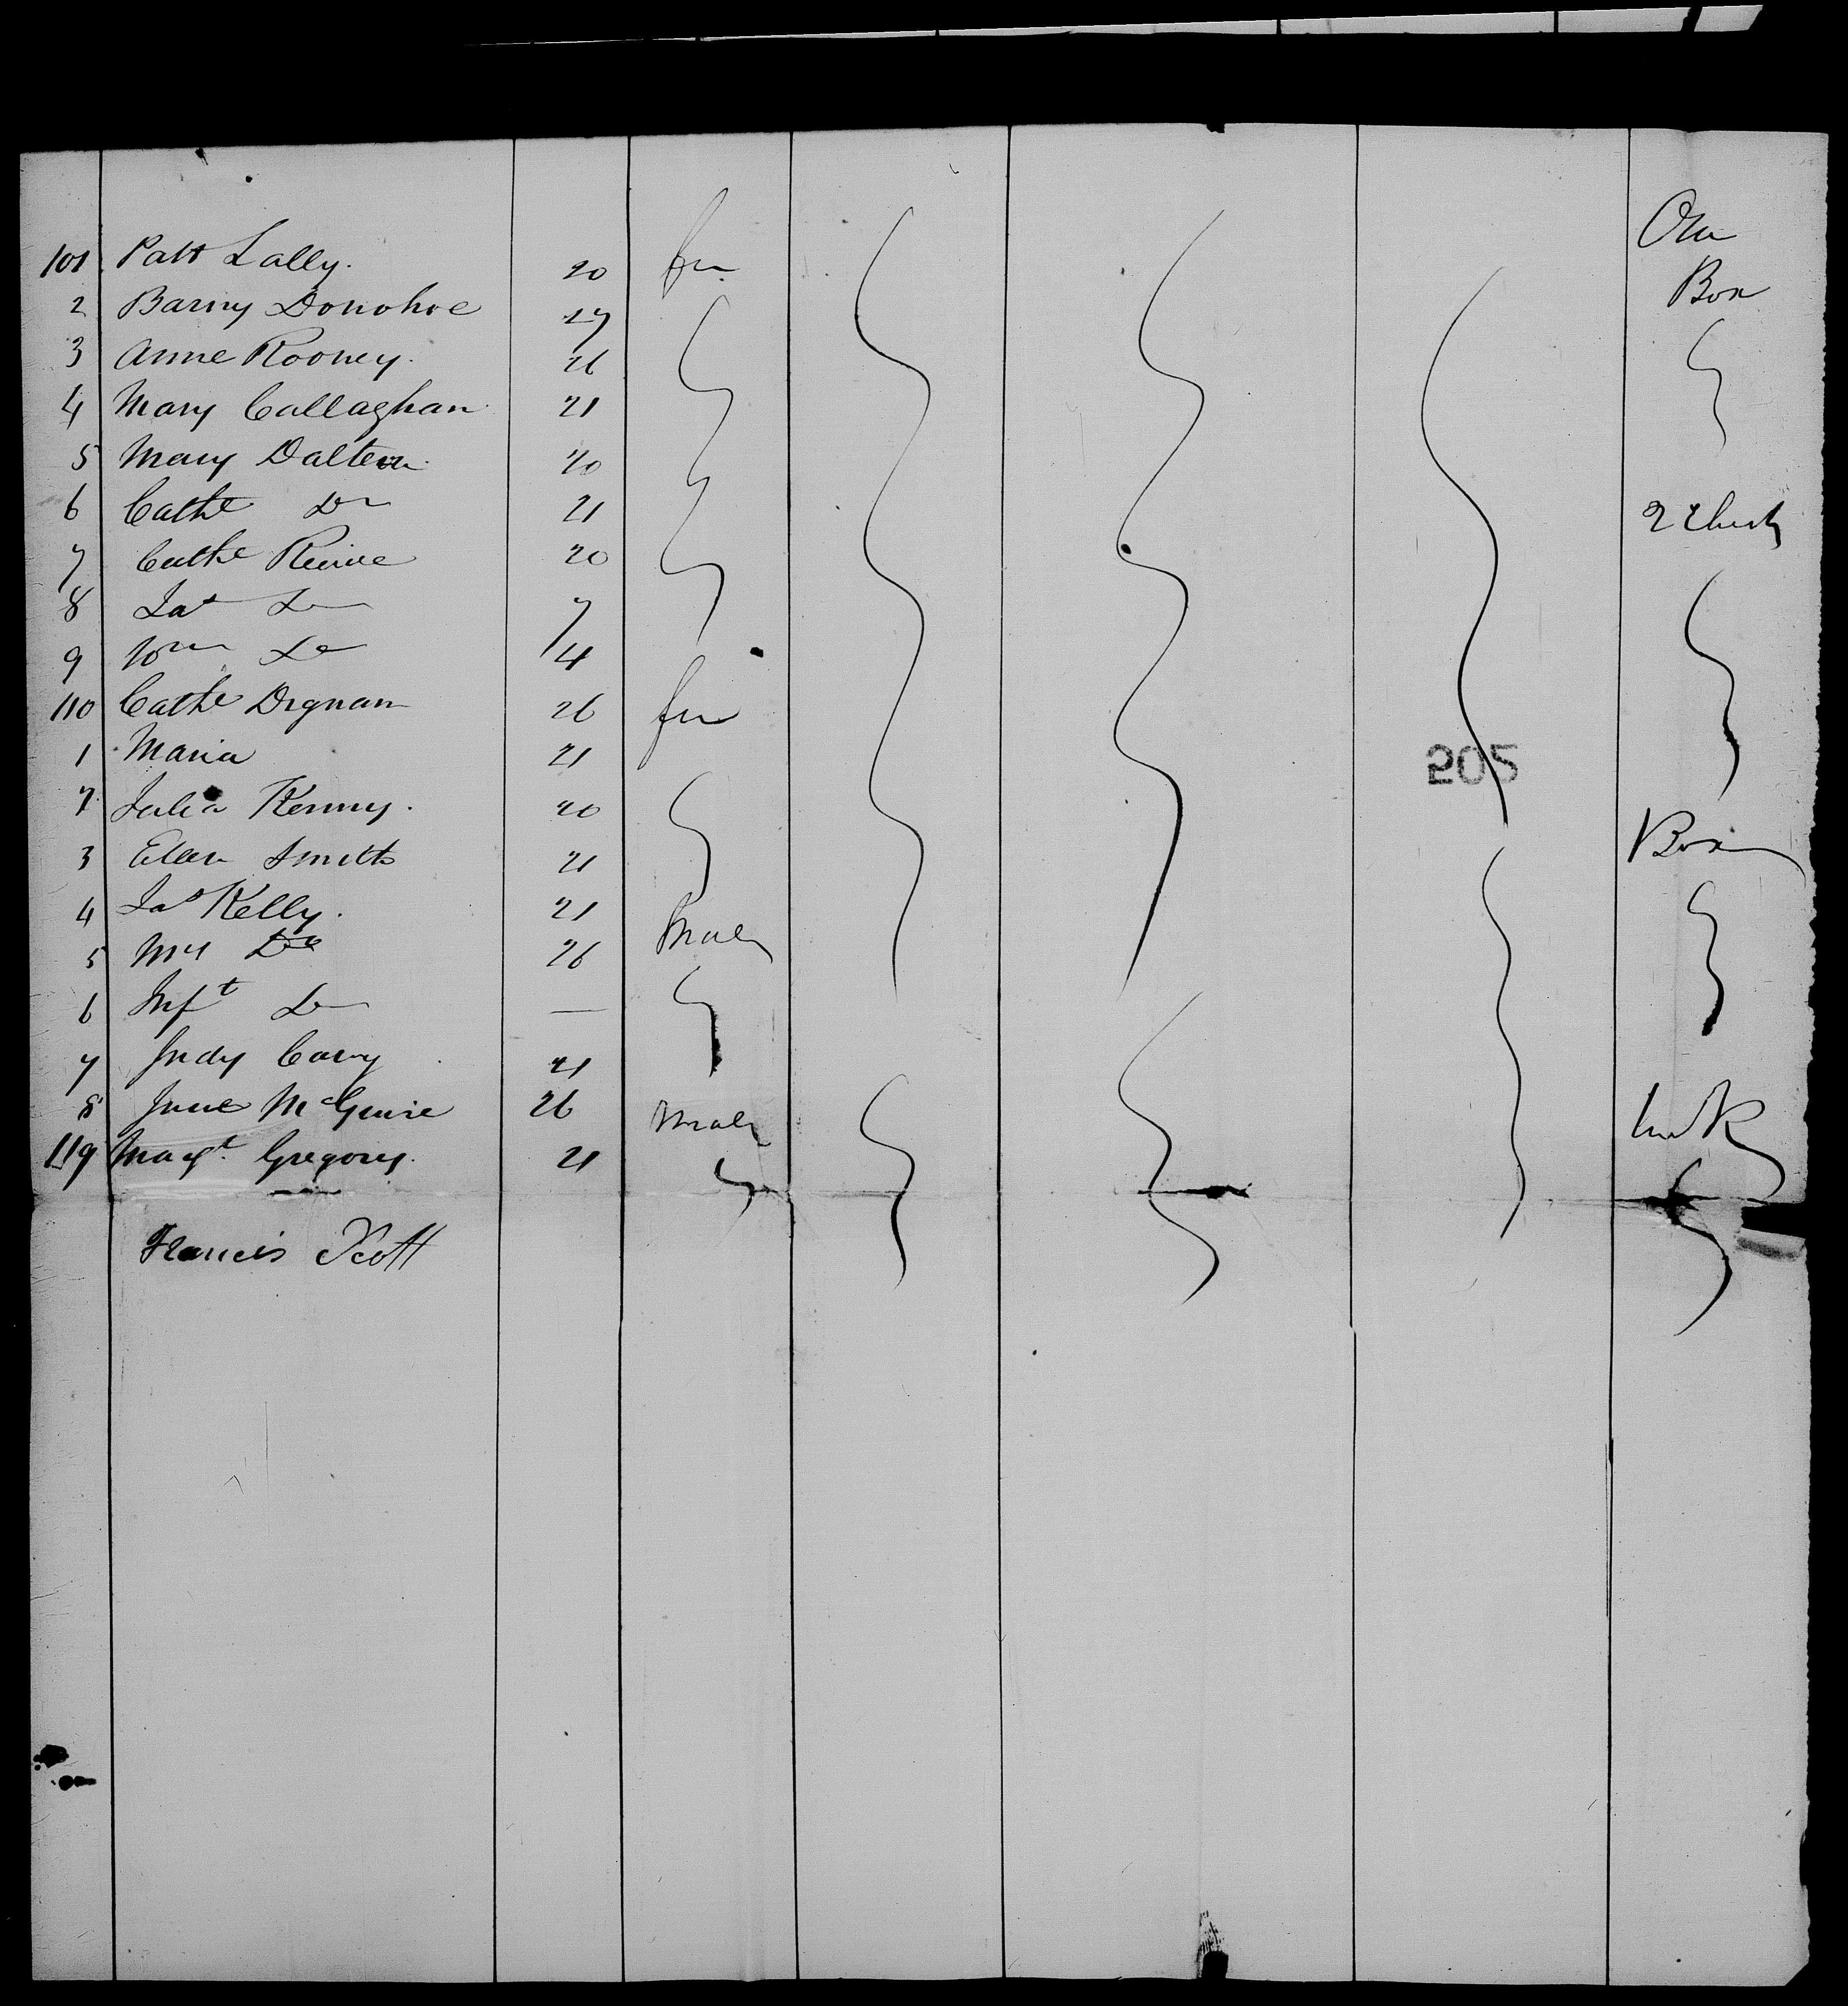 One
101 Patt Lally. 20 fm Box
2 Barny Donohoe 27
3 Anne Rooney. 26
4 Mary Callaghan 21
5 Mary Dalton 20
6 Cathe Do 21 2 Chests
7 Cathe 20
8 Jas Do 7
9 Wm Do 4
110 Cathe Dignam 26 fm
1 Maria 21
205
2 Julia Kenny. 20
3 Ellen Smith 21 Box
4 Jas Kelly. 21 Male
5 Mrs Do 26
6 Inft Do —
7 Judy Cary 21
8 Jane McGuire 26 Male
119 Magt. Gregory. 21
Francis Scott